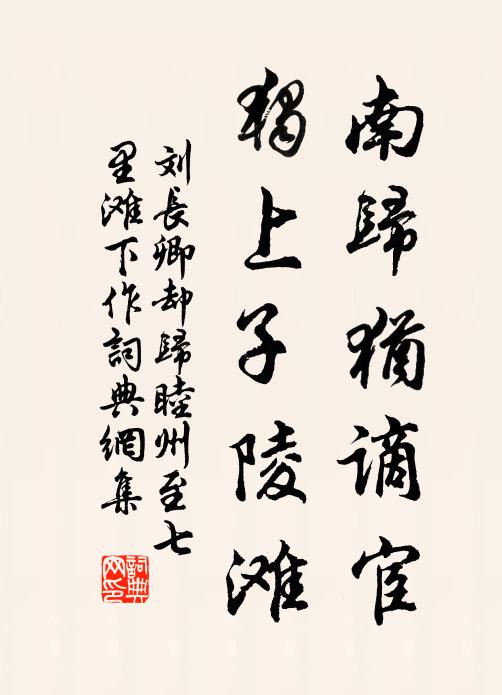 南歸猶謫宦
獨上子陵滩
刘長卿却歸睦州至七
里滩下作詞典網集
詞典网印